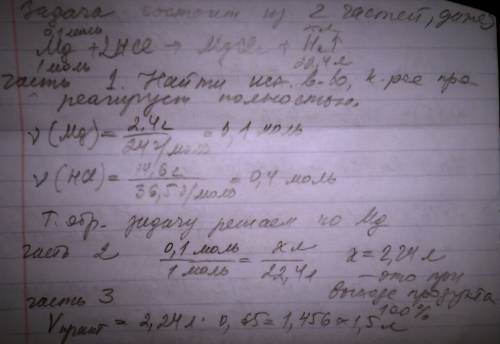 Задача состоит из 2 частей, даже 3
0,1 моль х л
Mg + 2HCl → MgCl₂ + H₂↑
1 моль 22,4 л
часть 1. Найти исх. в-во, к-рое про
реагирует полностью.
ν(Mg) = 2,4г / 24 г/моль = 0,1 моль
ν(HCl) = 14,6г / 36,5 г/моль = 0,4 моль
Т. обр. задачу решаем по Mg
часть 2 0,1 моль / 1 моль = х л / 22,4 л х = 2,24 л
— это при
выходе продукта
100%
часть 3
Vпракт = 2,24 л · 0,65 = 1,456 ≈ 1,5 л